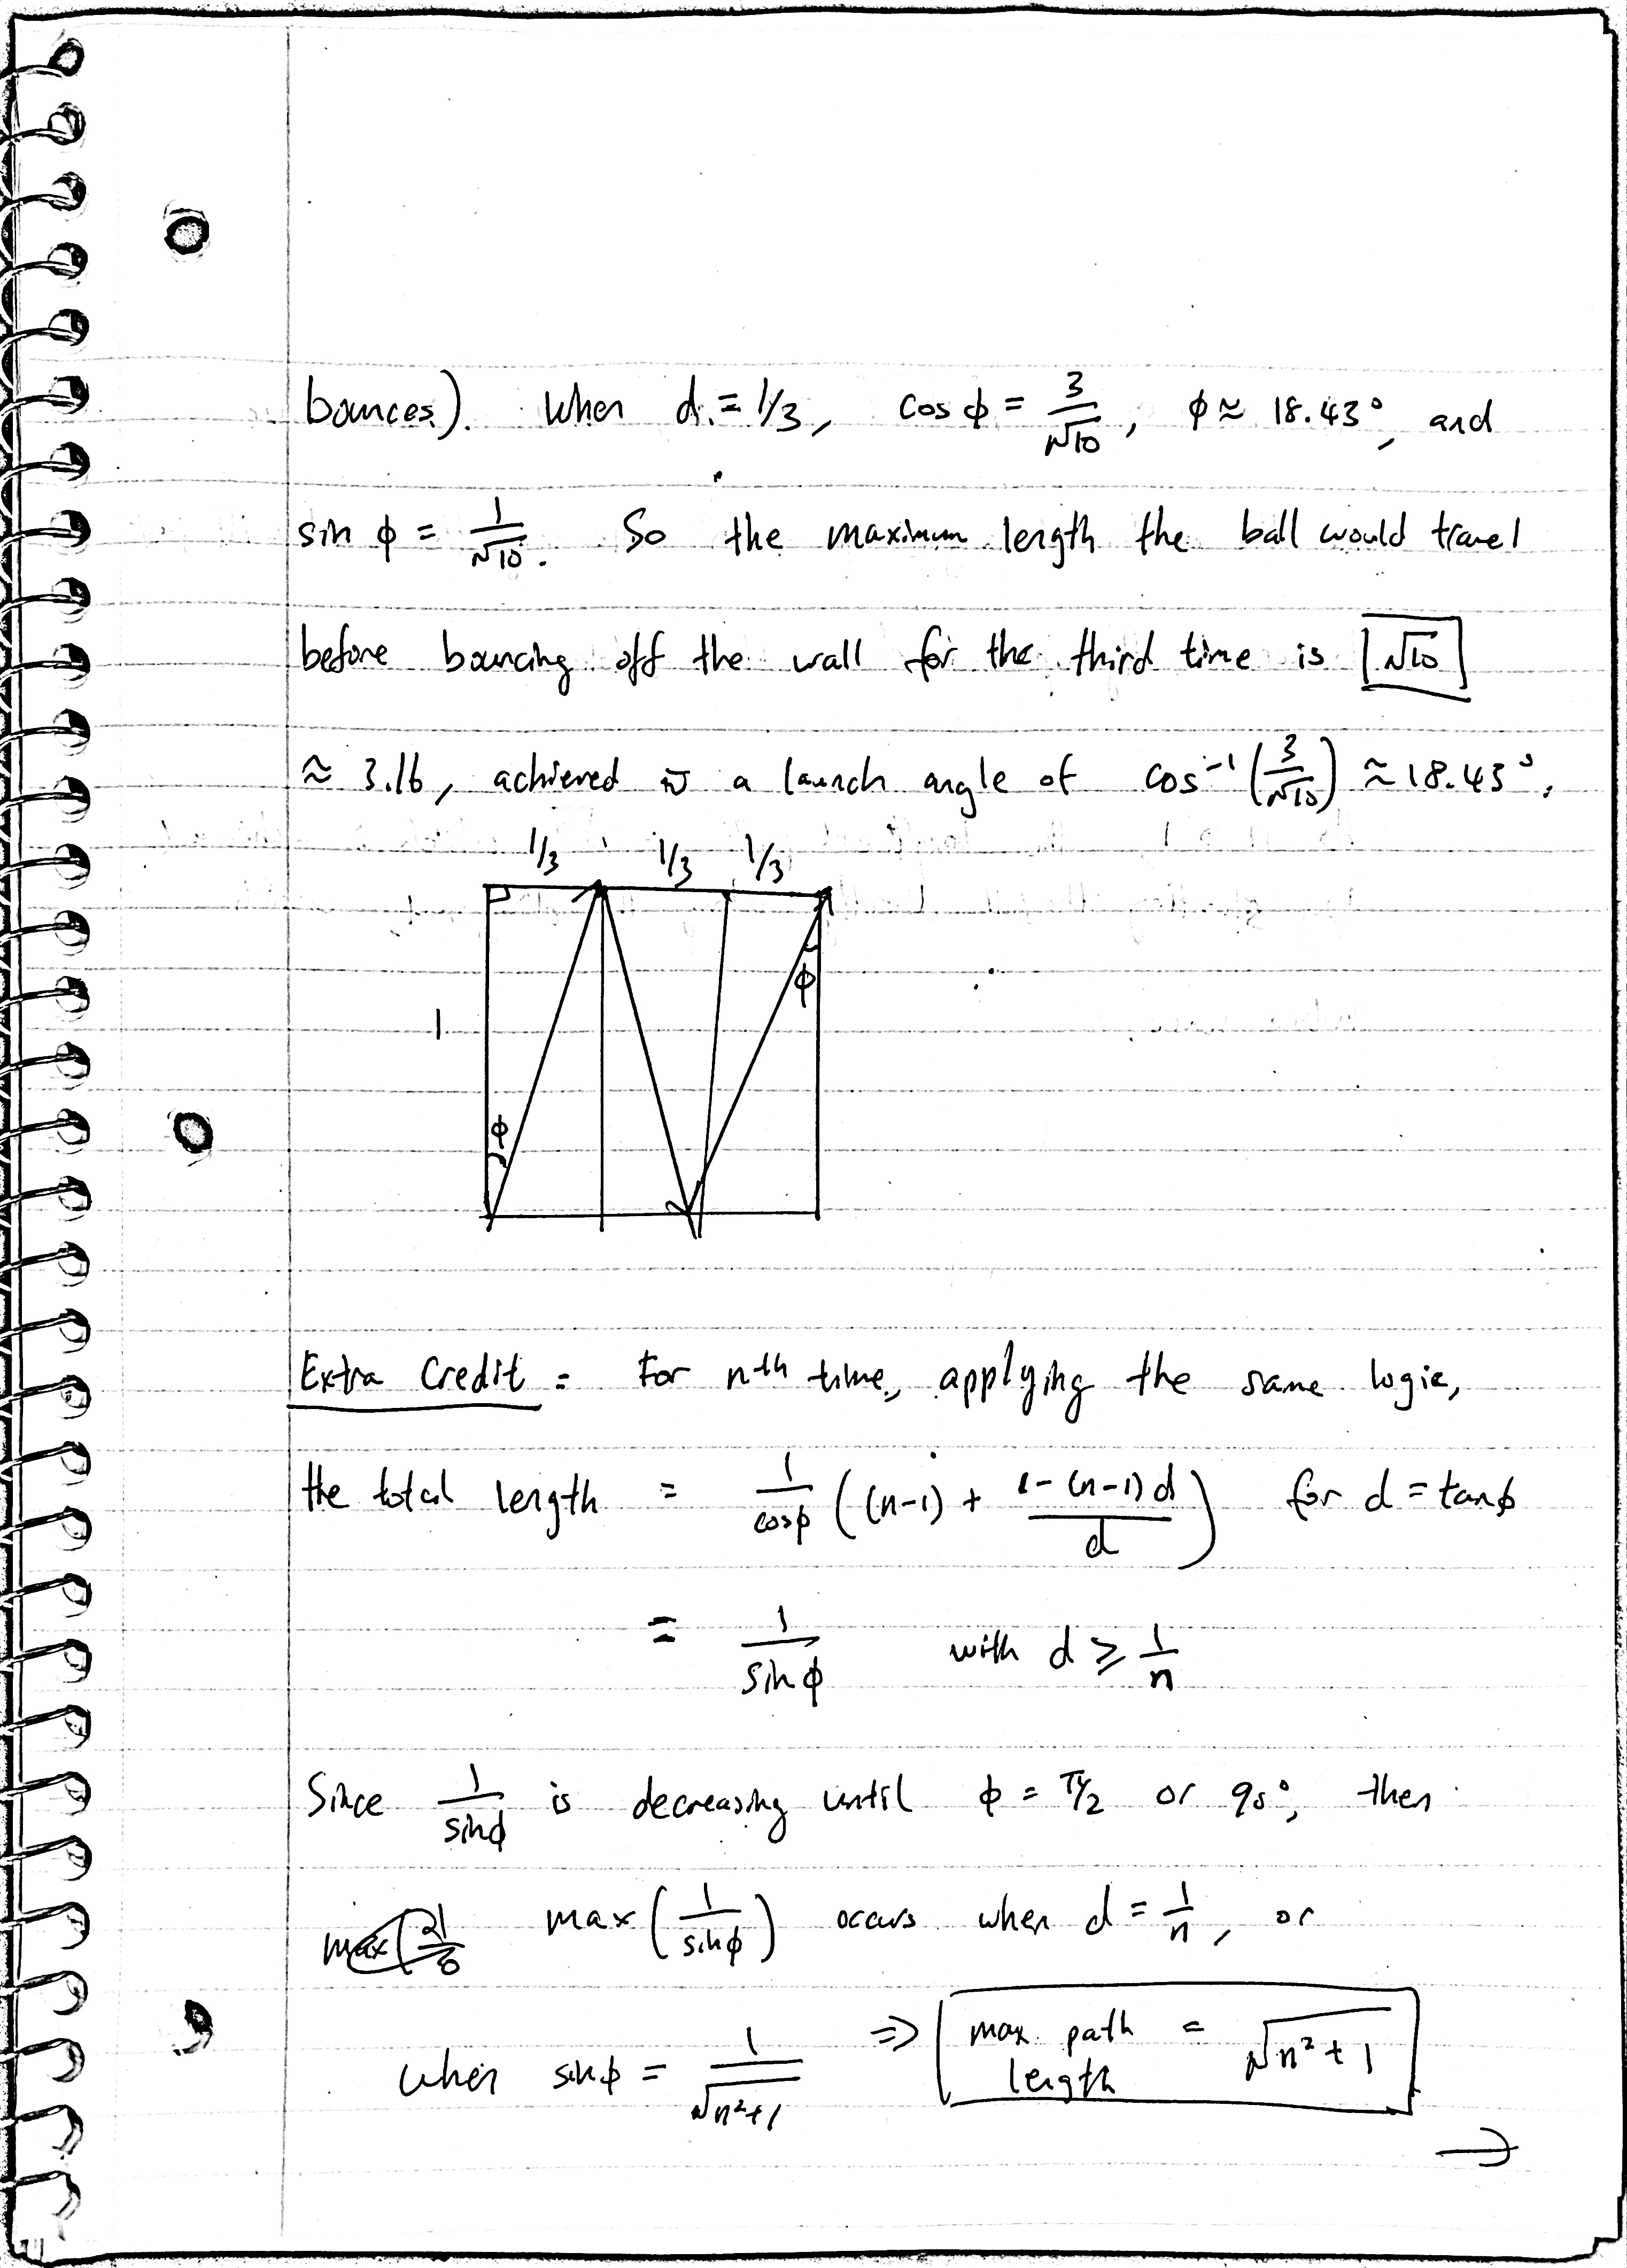 bounces). When d = 1/3, cos ϕ = 3/√10, ϕ ≈ 18.43°, and
sin ϕ = 1/√10. So the maximum length the ball would travel
before bouncing off the wall for the third time is √10
≈ 3.16, achieved w a launch angle of cos⁻¹(3/√10) ≈ 18.43°.
1/3 1/3 1/3
ϕ
1
ϕ
Extra Credit: For nth time, applying the same logic,
the total length = 1/cosϕ ((n-1) + (1-(n-1)d)/d) for d = tanϕ
= 1/sin ϕ with d ≥ 1/n
Since 1/sinϕ is decreasing until ϕ = π/2 or 90°, then
max(1/sinϕ) occurs when d = 1/n, or
when sinϕ = 1/√n²+1 ⇒ max path length = √n²+1
→